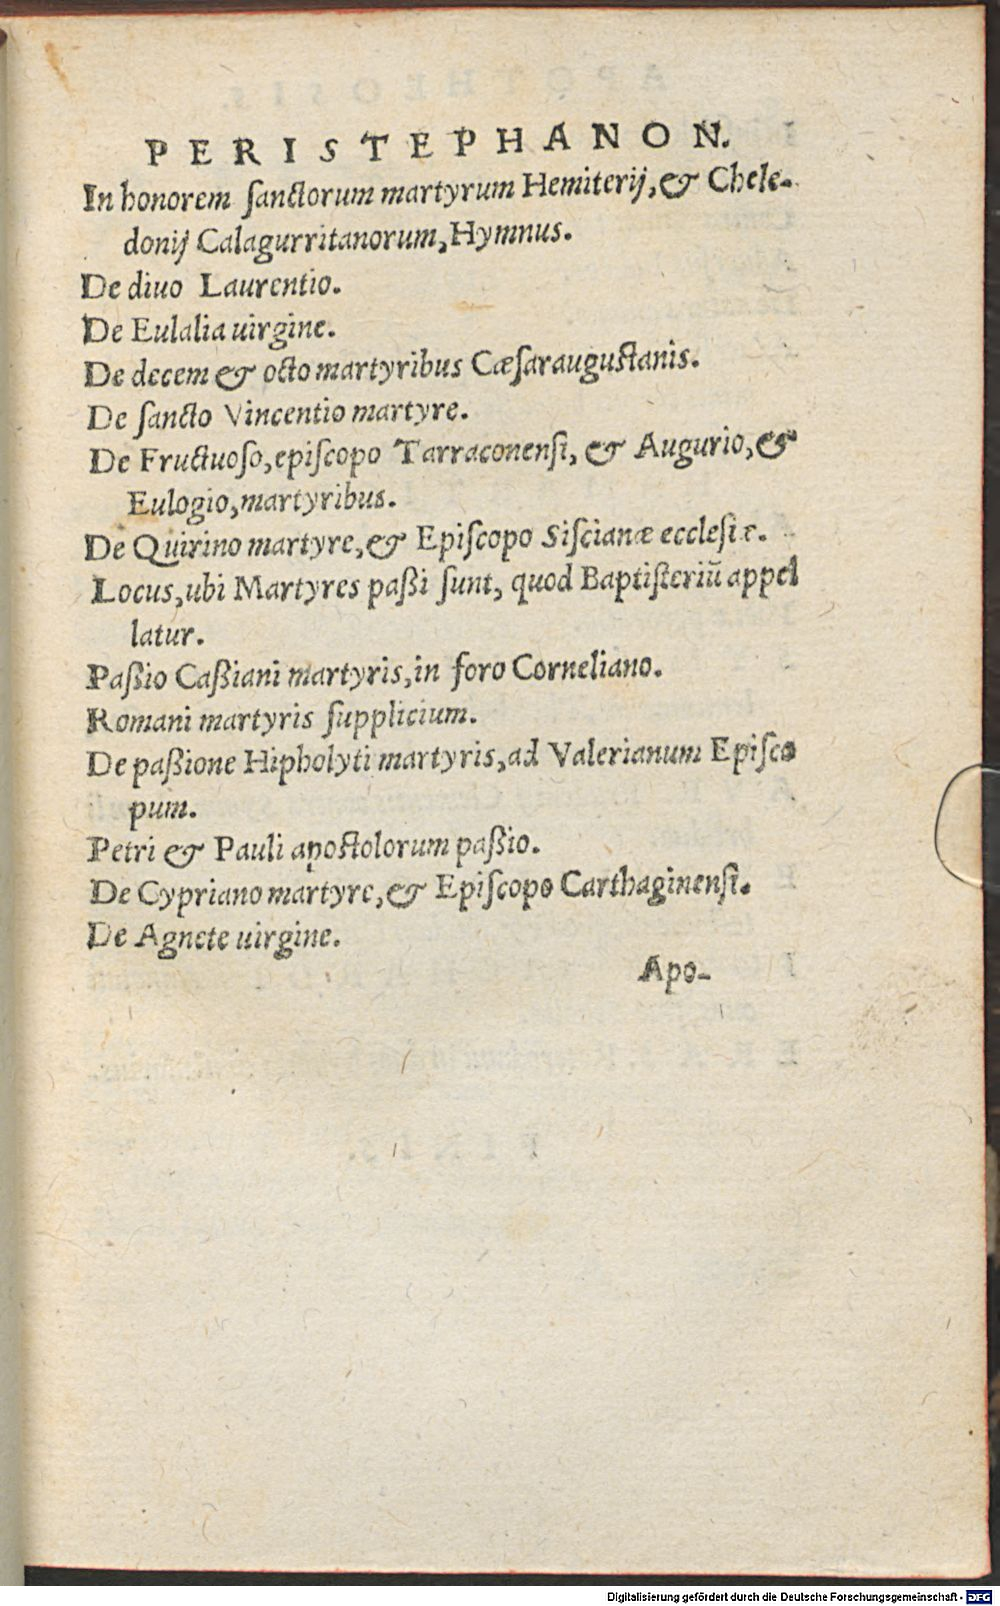 PERISTEPHANON.
In honorem sanctorum martyrum Hemiterij, & Chele-
donij Calagurritanorum, Hymnus.
De diuo Laurentio.
De Eulalia uirgine.
De decem & octo martyribus Cæsaraugustanis.
De sancto Vincentio martyre.
De Fructuoso, episcopo Tarraconensi, & Augurio, &
Eulogio, martyribus.
De Quirino martyre, & Episcopo Siscianæ ecclesiæ.
Locus, ubi Martyres paßi sunt, quod Baptisteriũ appel
latur.
Paßio Caßiani martyris, in foro Corneliano.
Romani martyris supplicium.
De paßione Hipholyti martyris, ad Valerianum Episco
pum.
Petri & Pauli apostolorum paßio.
De Cypriano martyre, & Episcopo Carthaginensi.
De Agnete uirgine.
Apo-
Digitalisierung gefördert durch die Deutsche Forschungsgemeinschaft - DFG